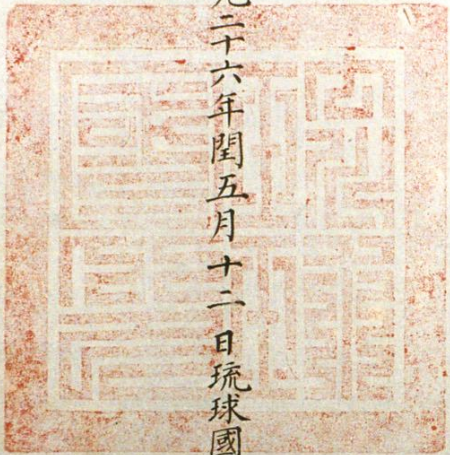 光二十六年閏五月十二日琉球國